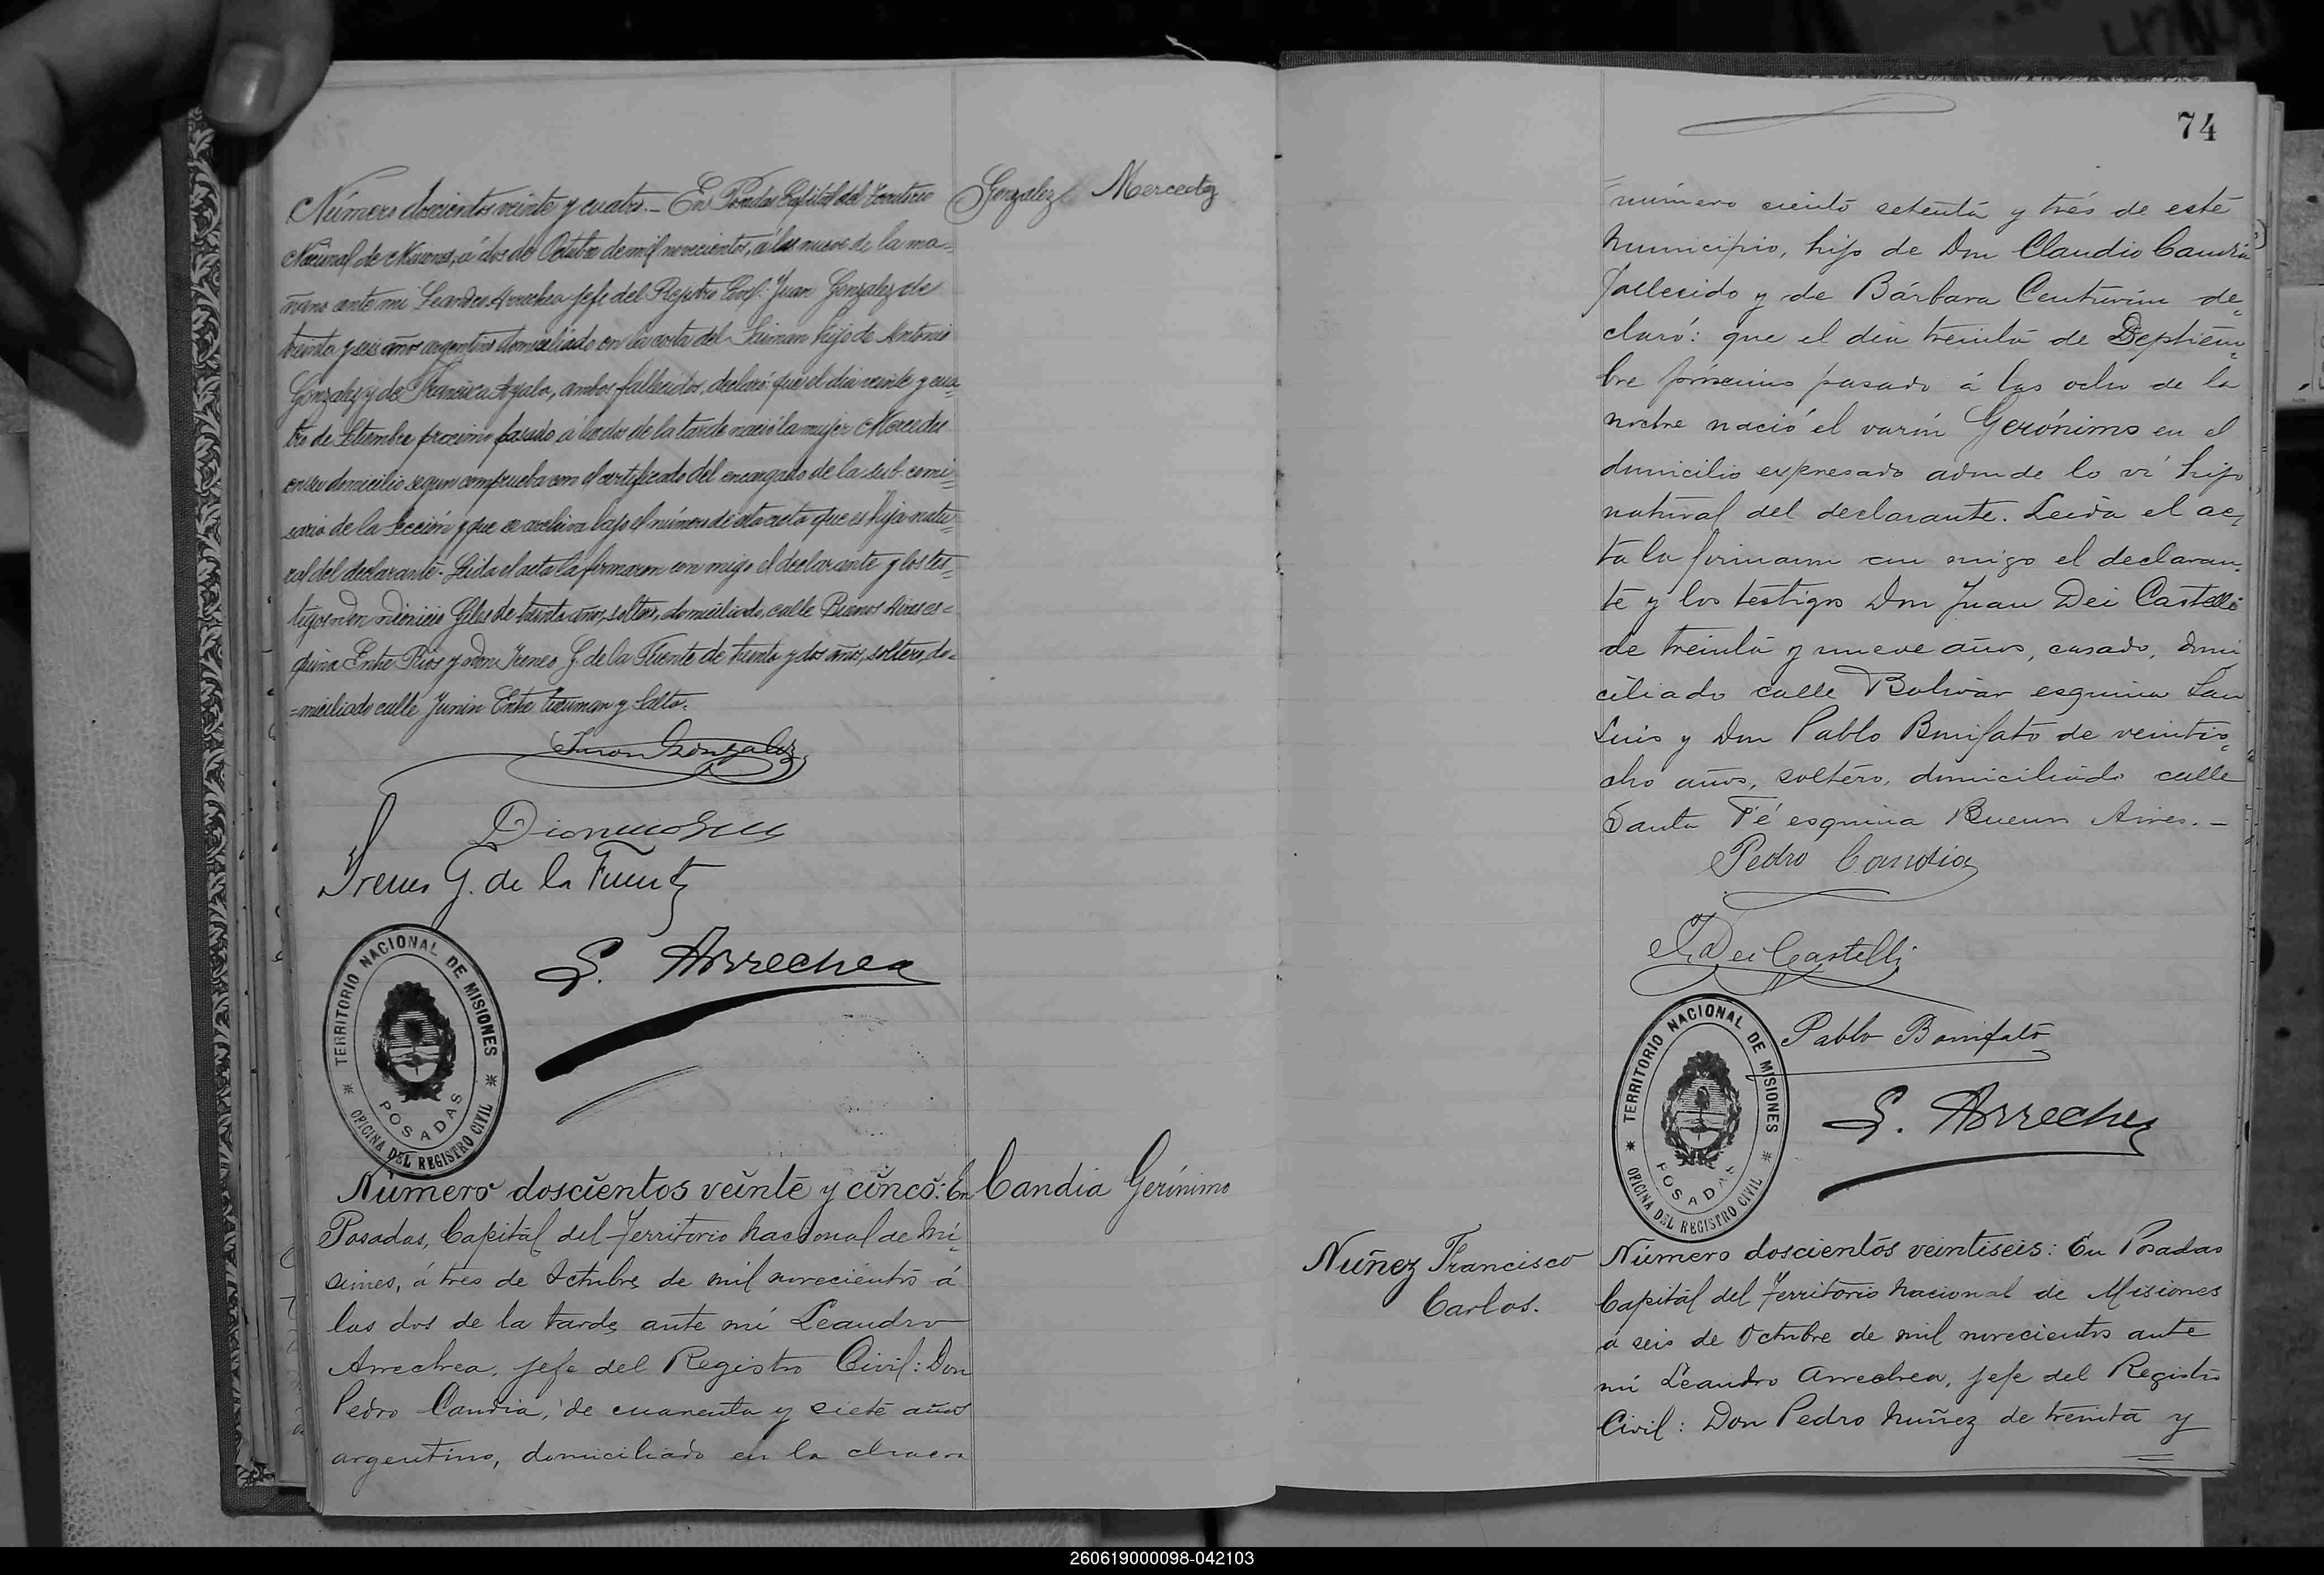 Número doscientos veinte y cuatro.– En Posadas Capital del Territorio
Gonzalez Mercedes
Nacional de Misiones, á dos de Octubre de mil novecientos, á las nueve de la ma=
ñana ante mi Leandro Arrechea Jefe del Registro Civil: Juan Gonzalez de
treinta y seis años argentino domiciliado en la costa del hijo de Antonio
Gonzalez y de Francisca Ayala, ambos fallecidos, declaró: que el dia veinte y cua=
tro de Setiembre proximo pasado á las dos de la tarde nació la mujer Mercedes
en su domicilio segun comprueba con el certificado del encargado de la sub-comi=
saria de la Sección y que se archiva bajo el número de esta acta que es hija natu=
ral del declarante.- Leida el acta la firmaron con migo el declarante y los tes=
tigos Don Dionicio Giles de treinta años, soltero, domiciliado, calle Buenos Aires es=
quina Entre Rios y don Ireneo G. de la Fuente de treinta y dos años, soltero, do=
=miciliado calle Junin Entre Tucuman y Salta.
Juan Gonzalez
Dionicio Giles
Ireneo G. de la Fuente
L. Arrechea
TERRITORIO NACIONAL DE MISIONES
POSADAS
OFICINA DEL REGISTRO CIVIL
Número doscientos veinte y cinco: En
Candia Gerónimo
Posadas, Capital del Territorio Nacional de Mi=
siones, á tres de Octubre de mil novecientos á
las dos de la tarde ante mi Leandro
Arrechea, Jefe del Registro Civil: Don
Pedro Candia, de cuarenta y siete años
argentino, domiciliado en la chacra
74
número ciento setenta y tres de este
Municipio, hijo de Don Claudio Candia
fallecido y de Bárbara Centurión de=
claró: que el dia treinta de Septiem=
bre próximo pasado á las ocho de la
noche nació el varón Gerónimo en el
domicilio expresado adonde lo vi hijo
natural del declarante. Leida el ac=
ta la firmaron con migo el declaran=
te y los testigos Don Juan Dei Castelli
de treinta y nueve años, casado, domi
ciliado calle Bolivar esquina San
Luis y Don Pablo Bonifato de veintio=
cho años, soltero, domiciliado calle
Santa Fé esquina Buenos Aires.–
Pedro Candia
J. Dei Castelli
Pablo Bonifato
L. Arrechea
TERRITORIO NACIONAL DE MISIONES
POSADAS
OFICINA DEL REGISTRO CIVIL
Nuñez Francisco
Carlos.
Número doscientos veintiseis: En Posadas
Capital del Territorio Nacional de Misiones
á seis de Octubre de mil novecientos ante
mi Leandro Arrechea, Jefe del Registro
Civil: Don Pedro Nuñez de treinta y
260619000098-042103